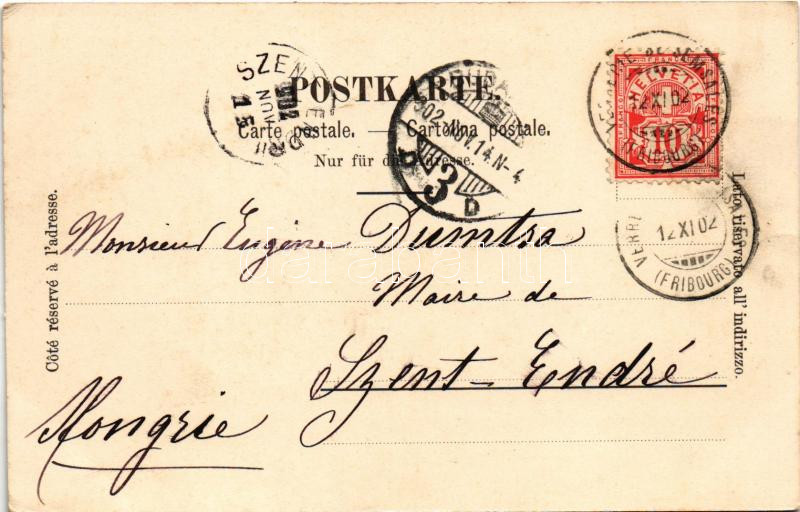 POSTKARTE.
Carte postale. — Cartolina postale.
Nur für die Adresse.
Côté réservé à l'adresse.
Lato riservato all' indirizzo.
HELVETIA
FRANCO
10
12 XI 02
(FRIBOURG)
12 XI 02
(FRIBOURG)
902 NOV. 14. N-4
3
D
SZENTENDRE
902 NOV 15
Monsieur Eugène Dumtsa
Maire de
Szent-Endré
Hongrie
darabanth